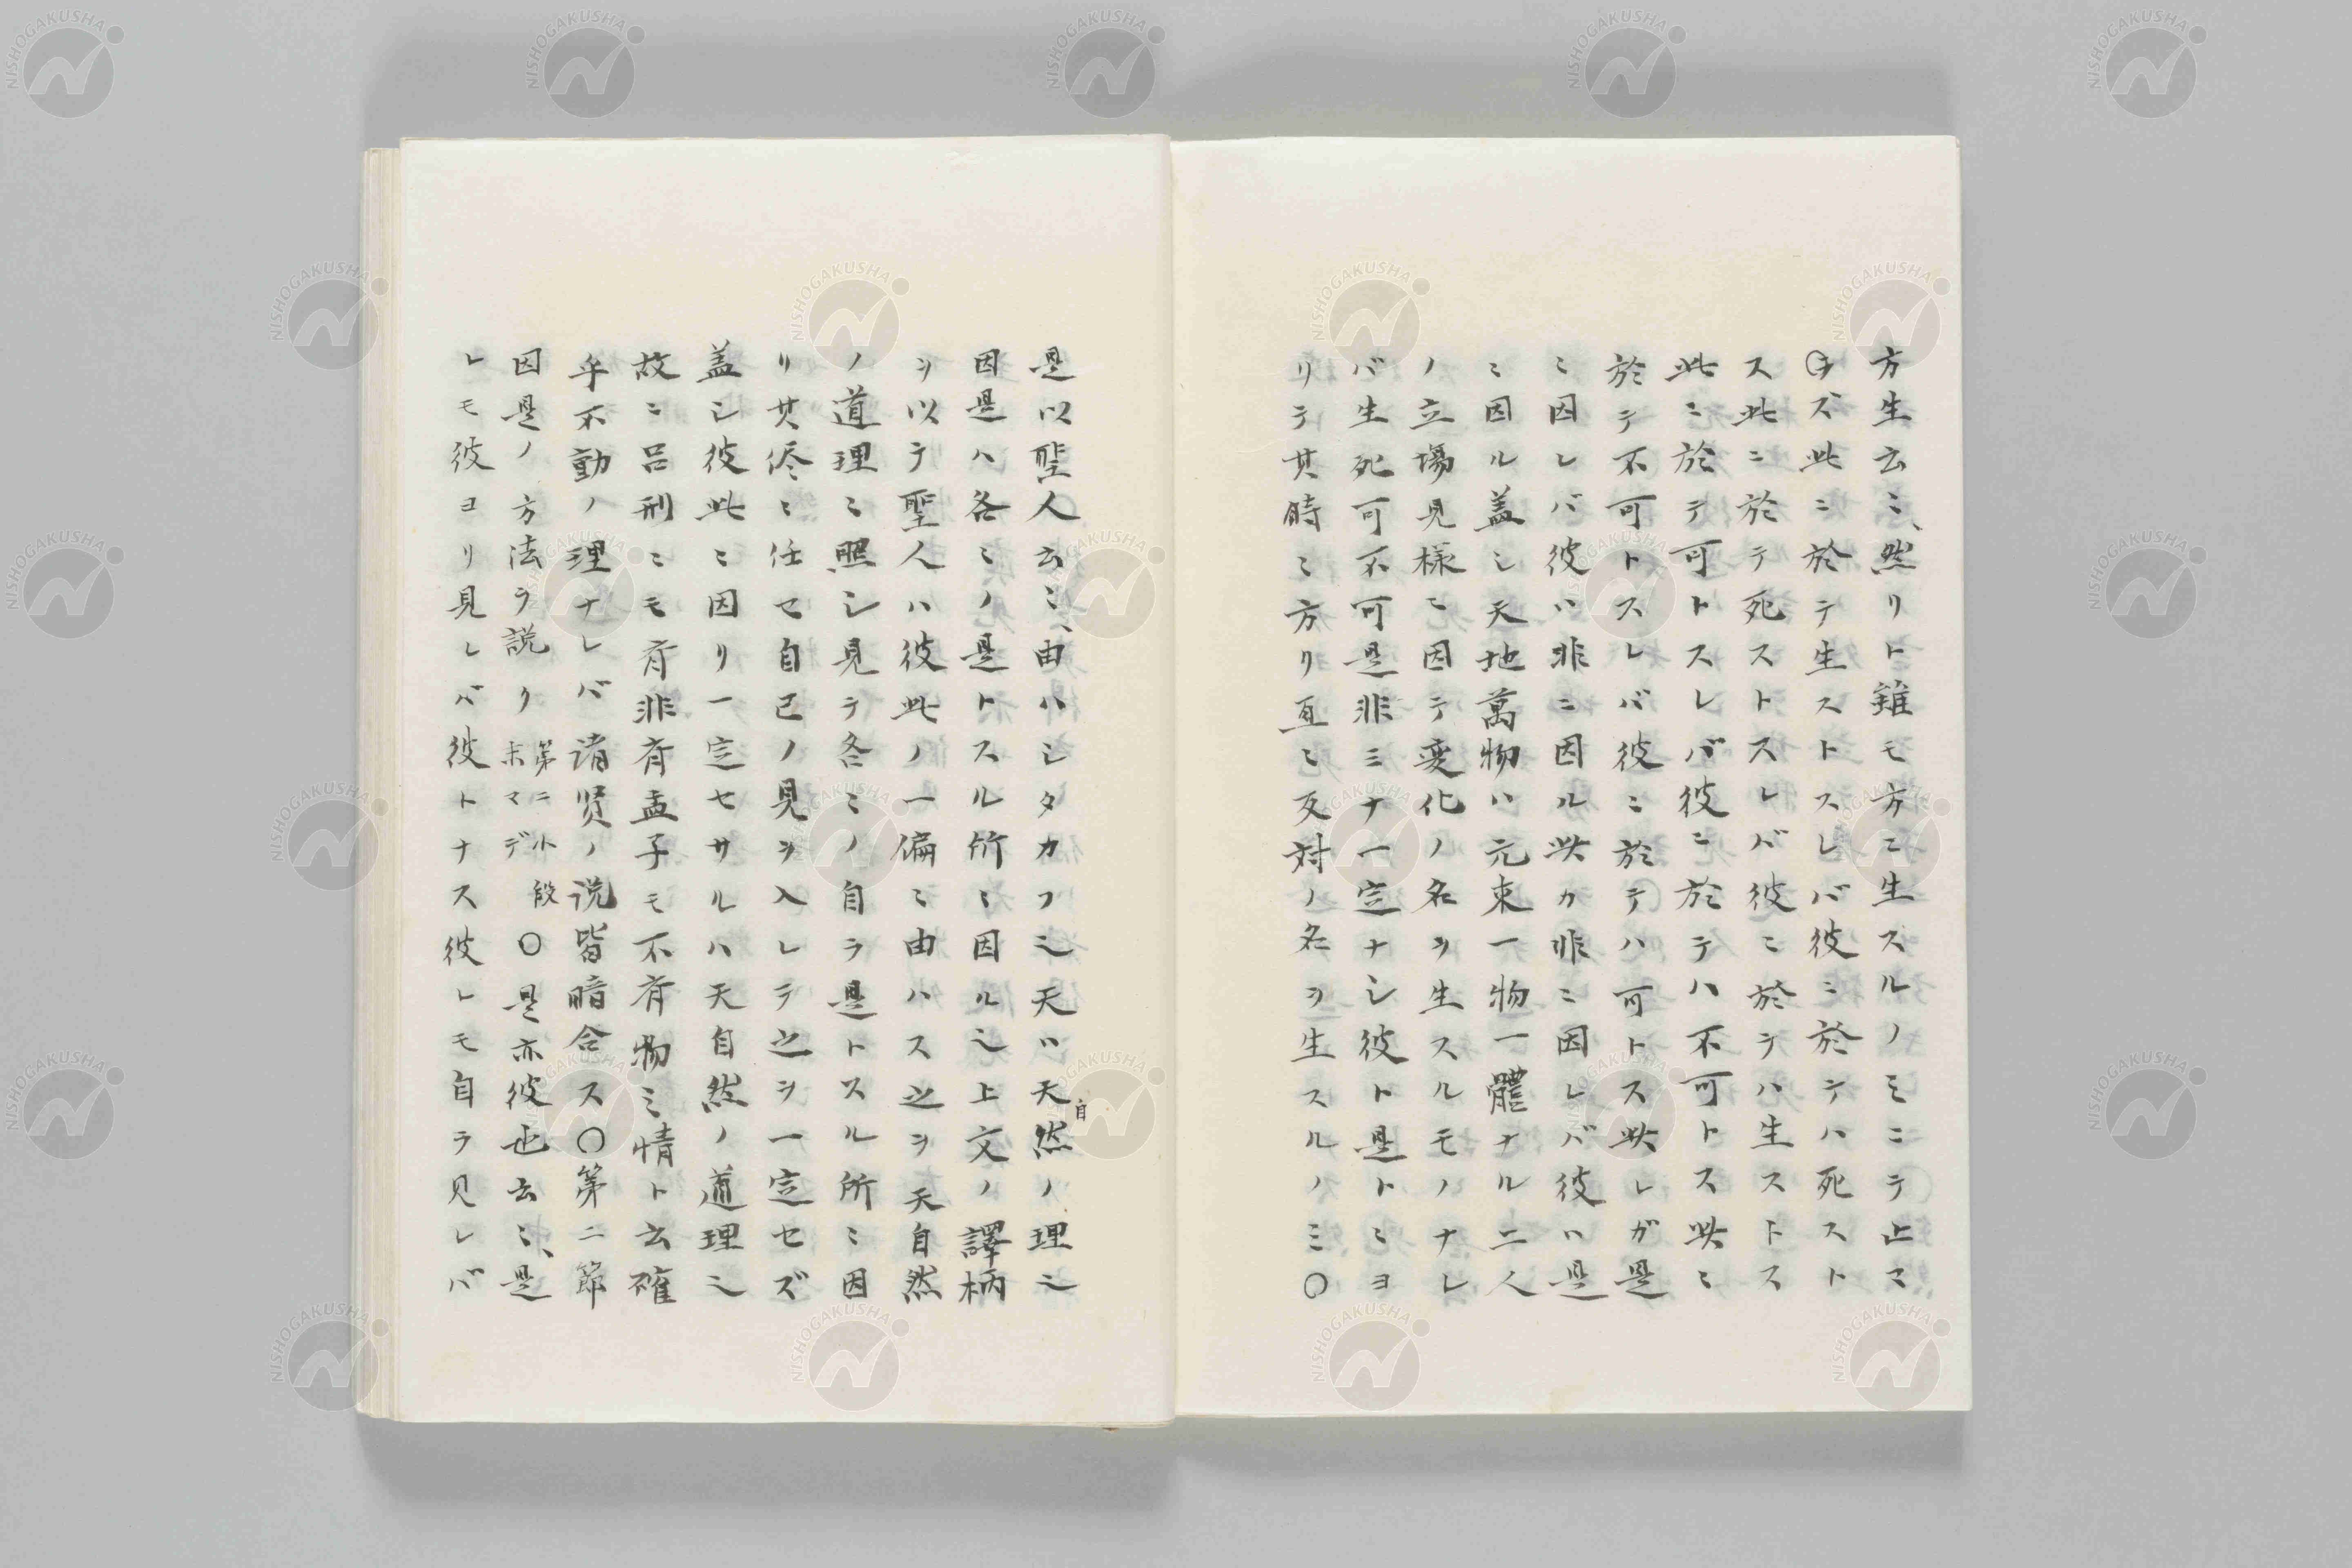 方生云〻、然リト雖モ方ニ生スルノミニテ止マ
ラズ此ニ於テ生ストスレバ彼ニ於テハ死スト
ス此ニ於テ死ストスレバ彼ニ於テハ生ストス
此ニ於テ可トスレバ彼ニ於テハ不可トス此ニ
於テ不可トスレバ彼ニ於テハ可トス此レガ是
ニ因レバ彼ハ非ニ因ル此カ非ニ因レバ彼ハ是
ニ因ル蓋シ天地萬物ハ元来一物一體ナル二人
ノ立場見様ニ因テ変化ノ名ヲ生スルモノナレ
バ生死可不可是非ミナ一定ナシ彼ト是トミヨ
リテ其時ニ方リ互ニ反対ノ名ヲ生スルノミ〇
是以聖人云〻、由ハシタカフ也天ハ天自然ノ理也
因是ハ各〻ノ是トスル所ニ因ル也上文ノ譯柄
ヲ以テ聖人ハ彼此ノ一偏ニ由ハス之ヲ天自然
ノ道理ニ照シ見テ各〻ノ自ラ是トスル所ニ因
リ其侭ニ任セ自己ノ見ヲ入レテ之ヲ一定セズ
蓋シ彼此ニ因リ一定セサルハ天自然ノ道理也
故ニ呂刑ニモ斉非斉孟子モ不斉物之情ト云確
乎不動ノ理ナレバ諸贤ノ説皆暗合ス〇第二節
因是ノ方法ヲ説ク第二小段末マデ〇是亦彼也云〻、是
レモ彼ヨリ見レバ彼トナス彼レモ自ラ見レバ
NISHOGAKUSHA